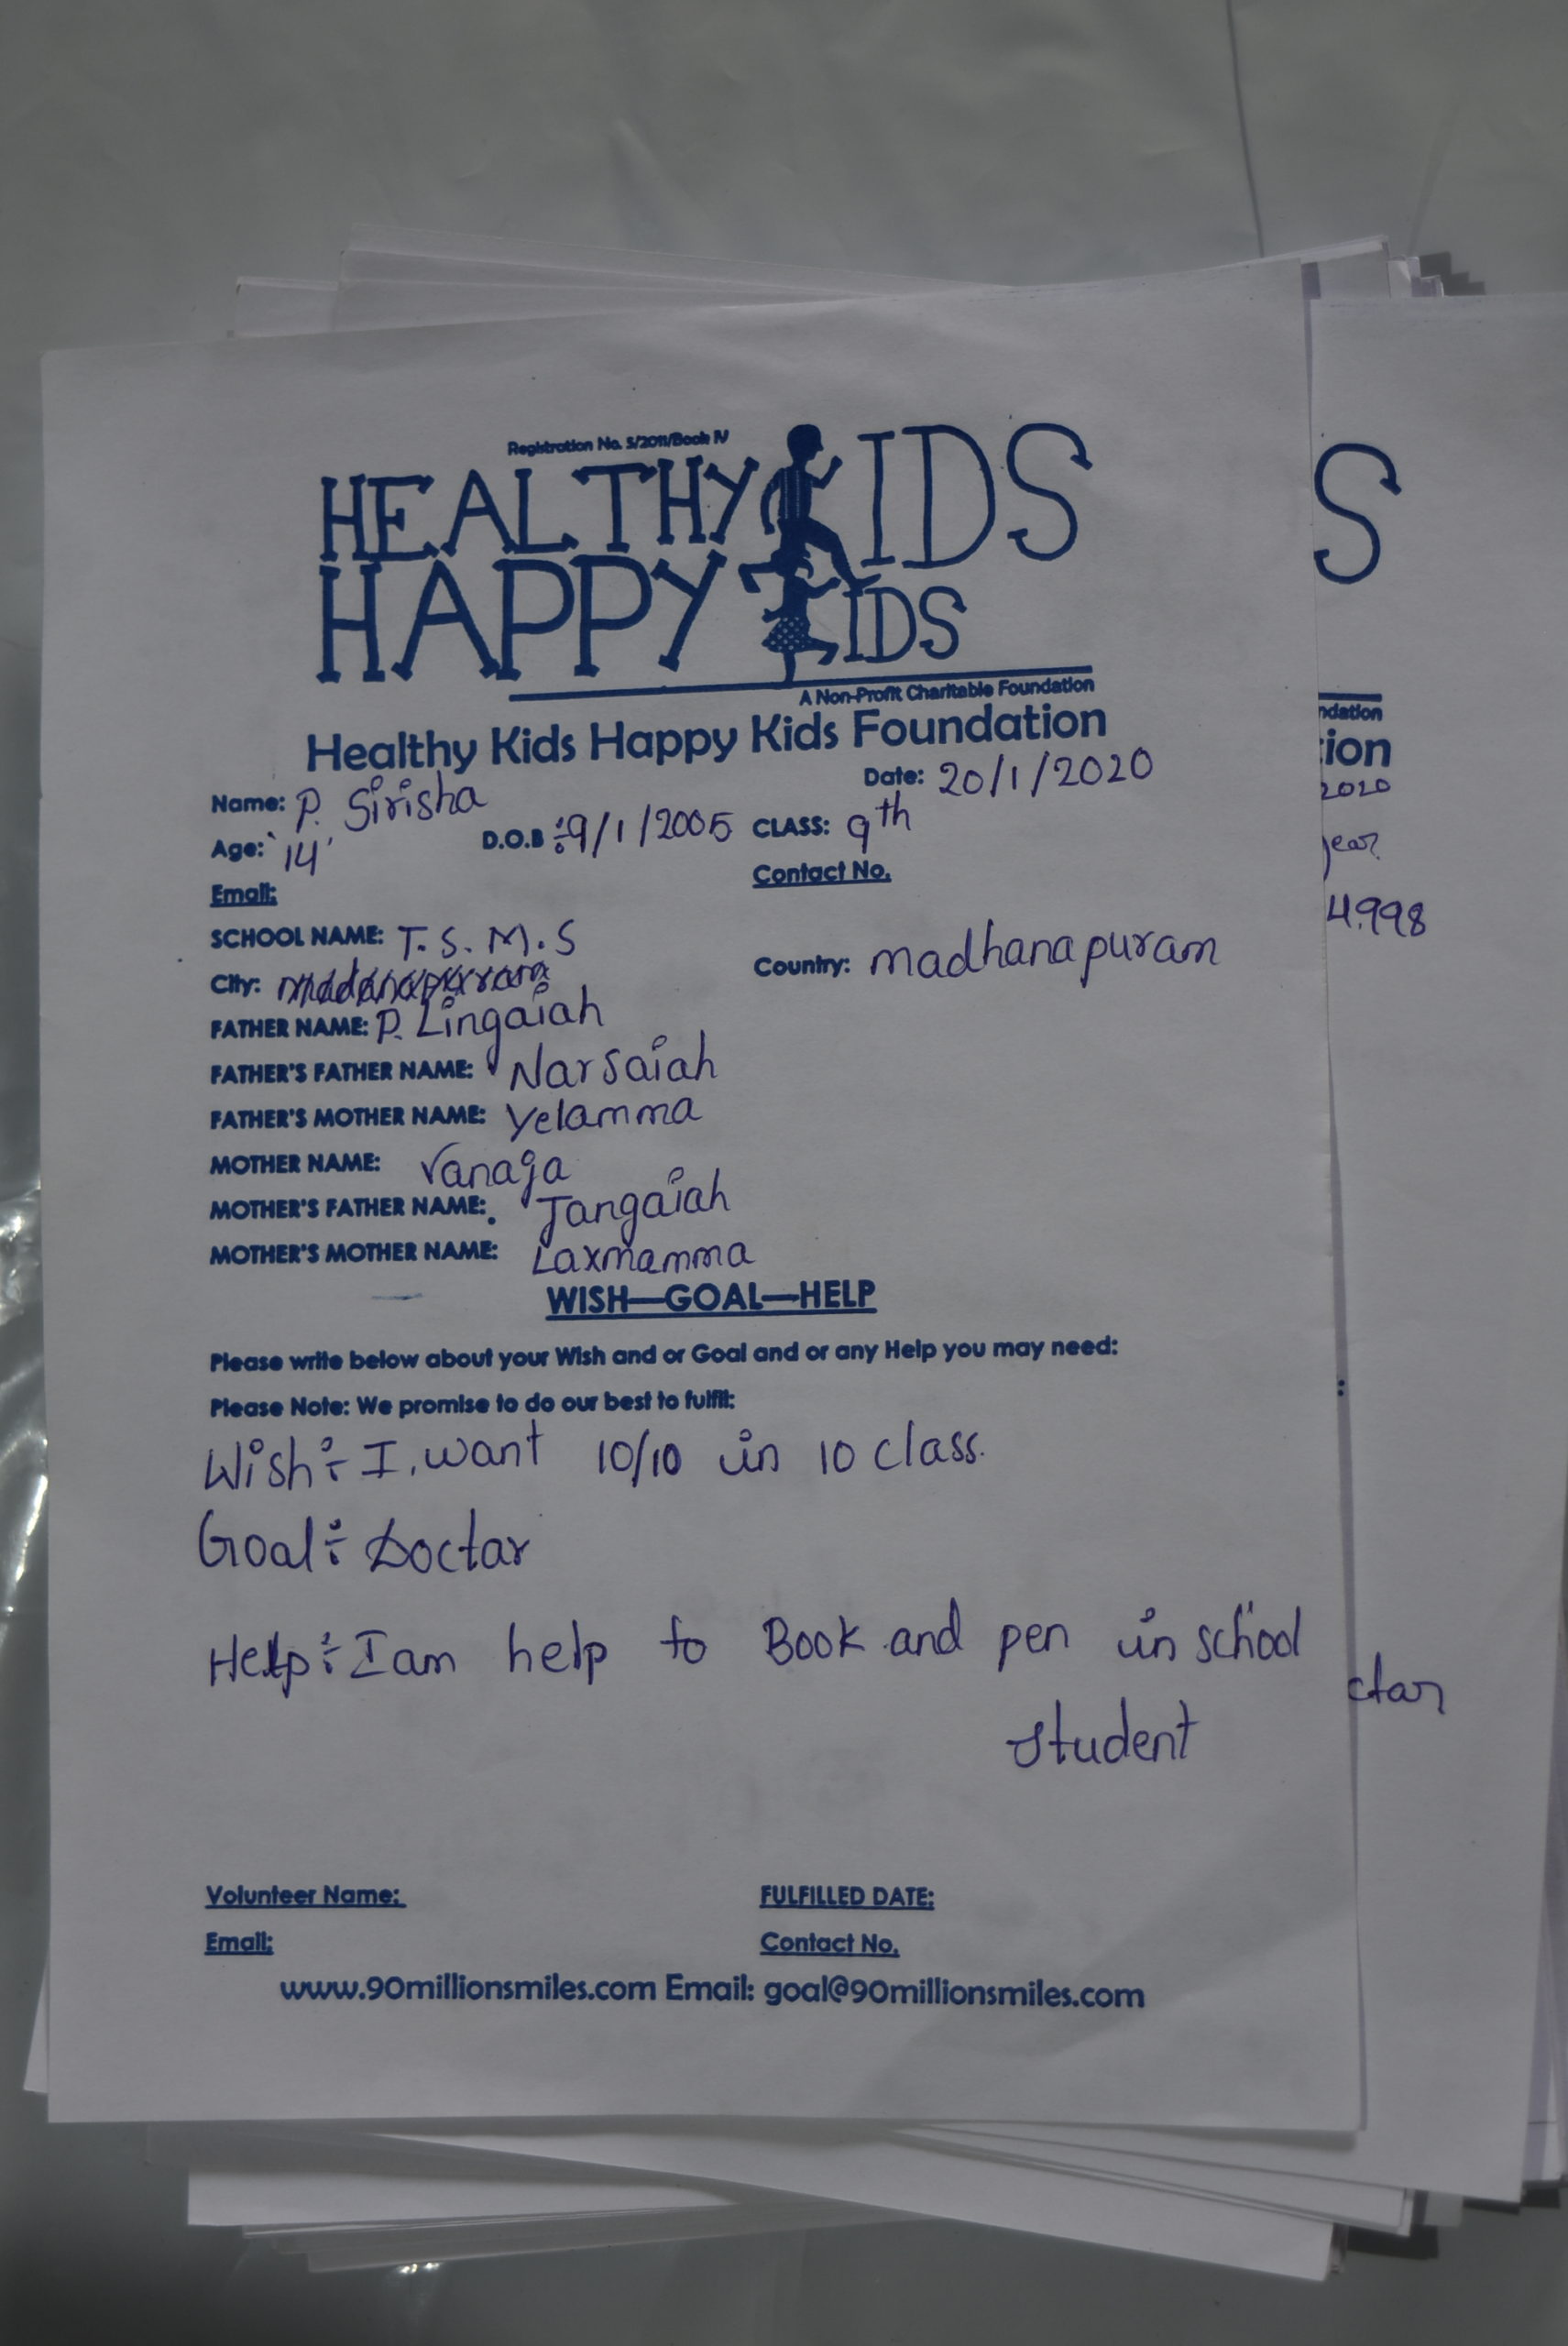 Registration No. 5/2011/Book IV
HEALTHY KIDS
HAPPY KIDS
A Non-Profit Charitable Foundation
Healthy Kids Happy Kids Foundation
Date: 20/1/2020
Name: P. Sirisha
Age: '14' D.O.B :-9/1/2005 CLASS: 9th
Email: Contact No.
SCHOOL NAME: T.S.M.S
City: Country: madhanapuram
FATHER NAME: P. Lingaiah
FATHER'S FATHER NAME: Narsaiah
FATHER'S MOTHER NAME: Yelamma
MOTHER NAME: Vanaja
MOTHER'S FATHER NAME: Jangaiah
MOTHER'S MOTHER NAME: Laxmamma
WISH—GOAL—HELP
Please write below about your Wish and or Goal and or any Help you may need:
Please Note: We promise to do our best to fulfil:
Wish :- I, want 10/10 in 10 class.
Goal :- Doctar
Help :- I am help to Book and pen in school
student
Volunteer Name: FULFILLED DATE:
Email: Contact No.
www.90millionsmiles.com Email: goal@90millionsmiles.com
S
ndation
ion
2020
year
4,998
ctar